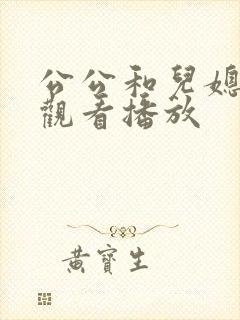 公公和兒媳
觀看播放
黃寶生